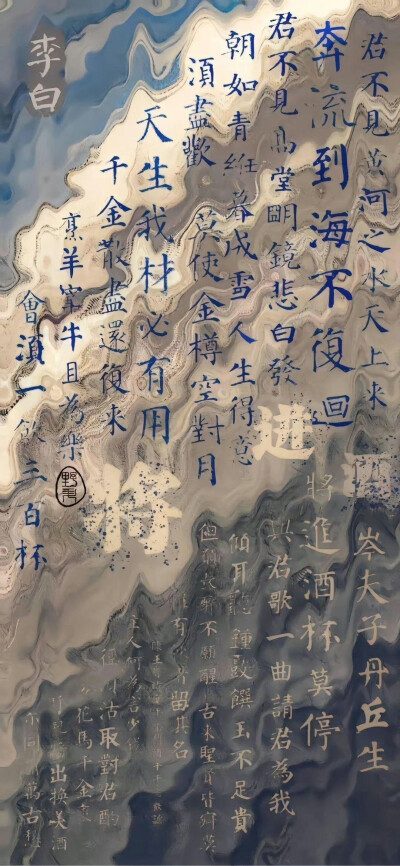 李白
君不見黃河之水天上来
奔流到海不復迴
君不見高堂明鏡悲白發
朝如青絲暮成雪人生得意
須盡歡莫使金樽空對月
天生我材必有用
千金散盡還復来
烹羊宰牛且為樂
會須一飲三百杯
將進酒
岑夫子丹丘生
將進酒杯莫停
與君歌一曲請君為我
傾耳聽鐘鼓饌玉不足貴
但願長醉不願醒古来聖賢皆寂寞
惟有飲者留其名
主人何為言少錢
徑須沽取對君酌
花馬千金裘
呼兒將出換美酒
同銷萬古愁